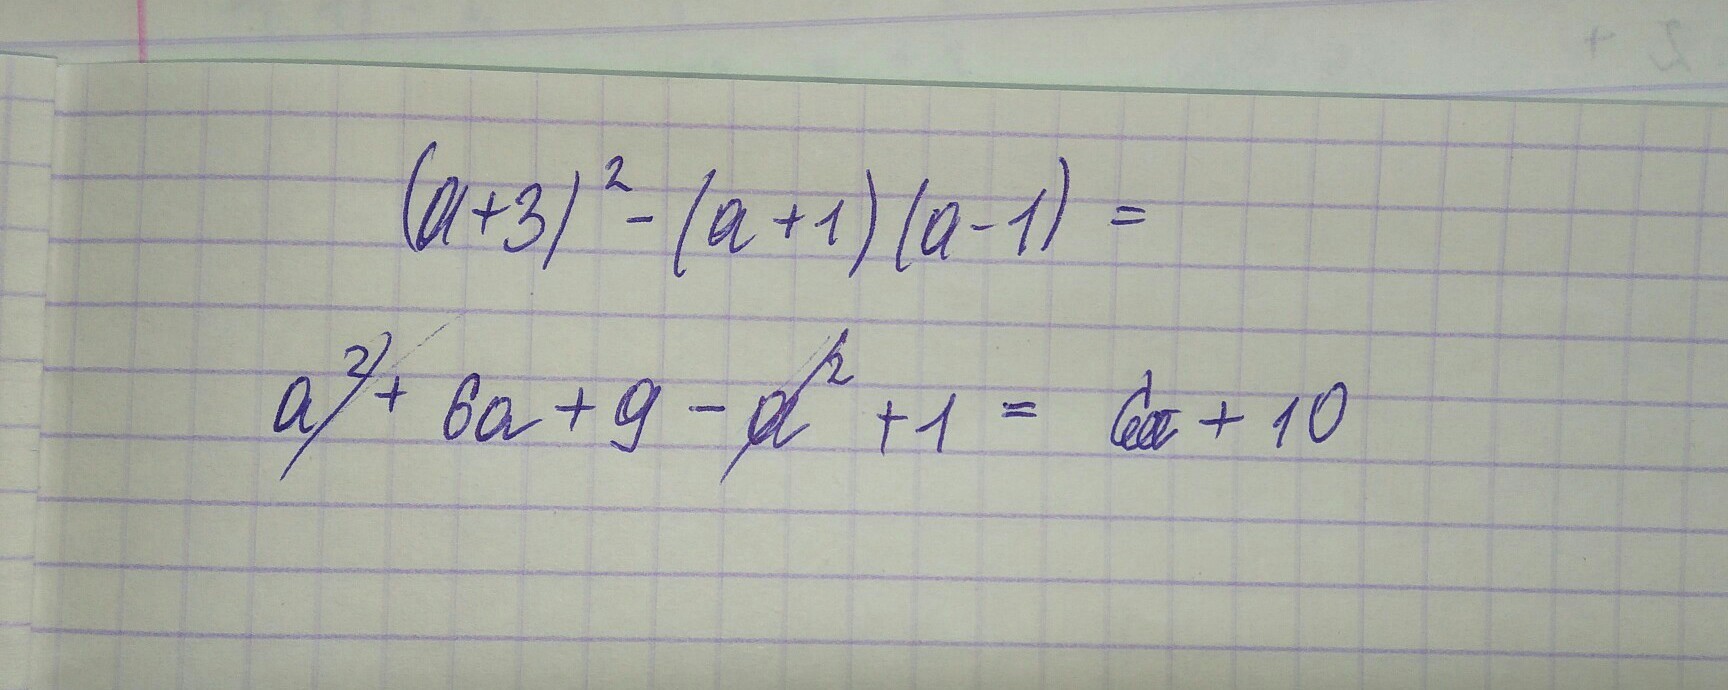 (a+3)² - (a+1)(a-1) =
a² + 6a + 9 - a² + 1 = 6a + 10